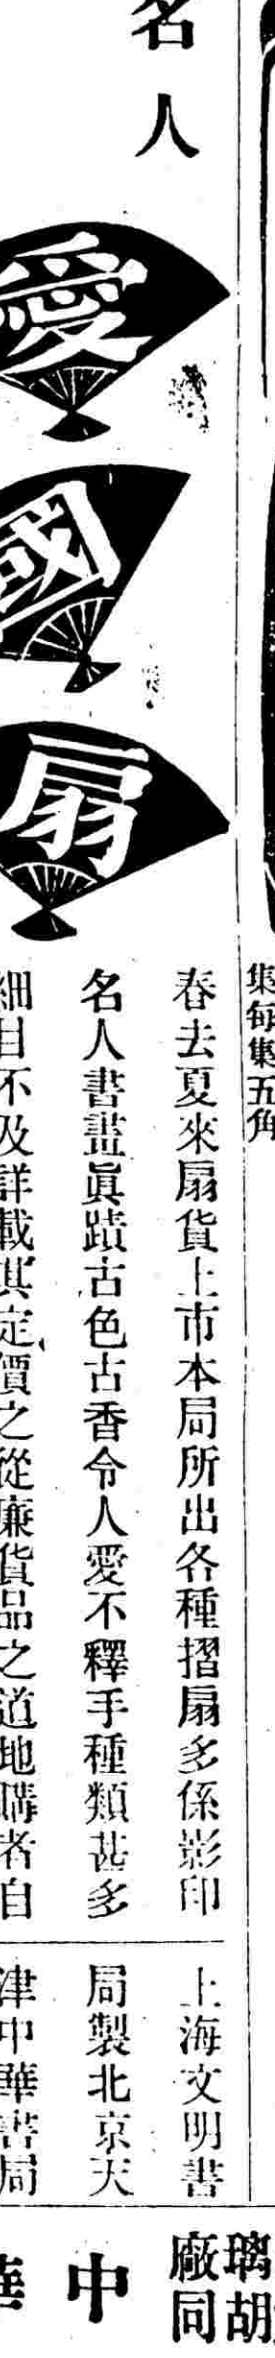 集每集五角
名人
愛國扇
春去夏來扇貨上市本局所出各種摺扇多係影印
名人書畫眞蹟古色古香令人愛不釋手種類甚多
細目不及詳載其定價之從廉貨品之道地購者自
上海文明書
局製北京天
津中華書局
璃胡
廠同
中
華